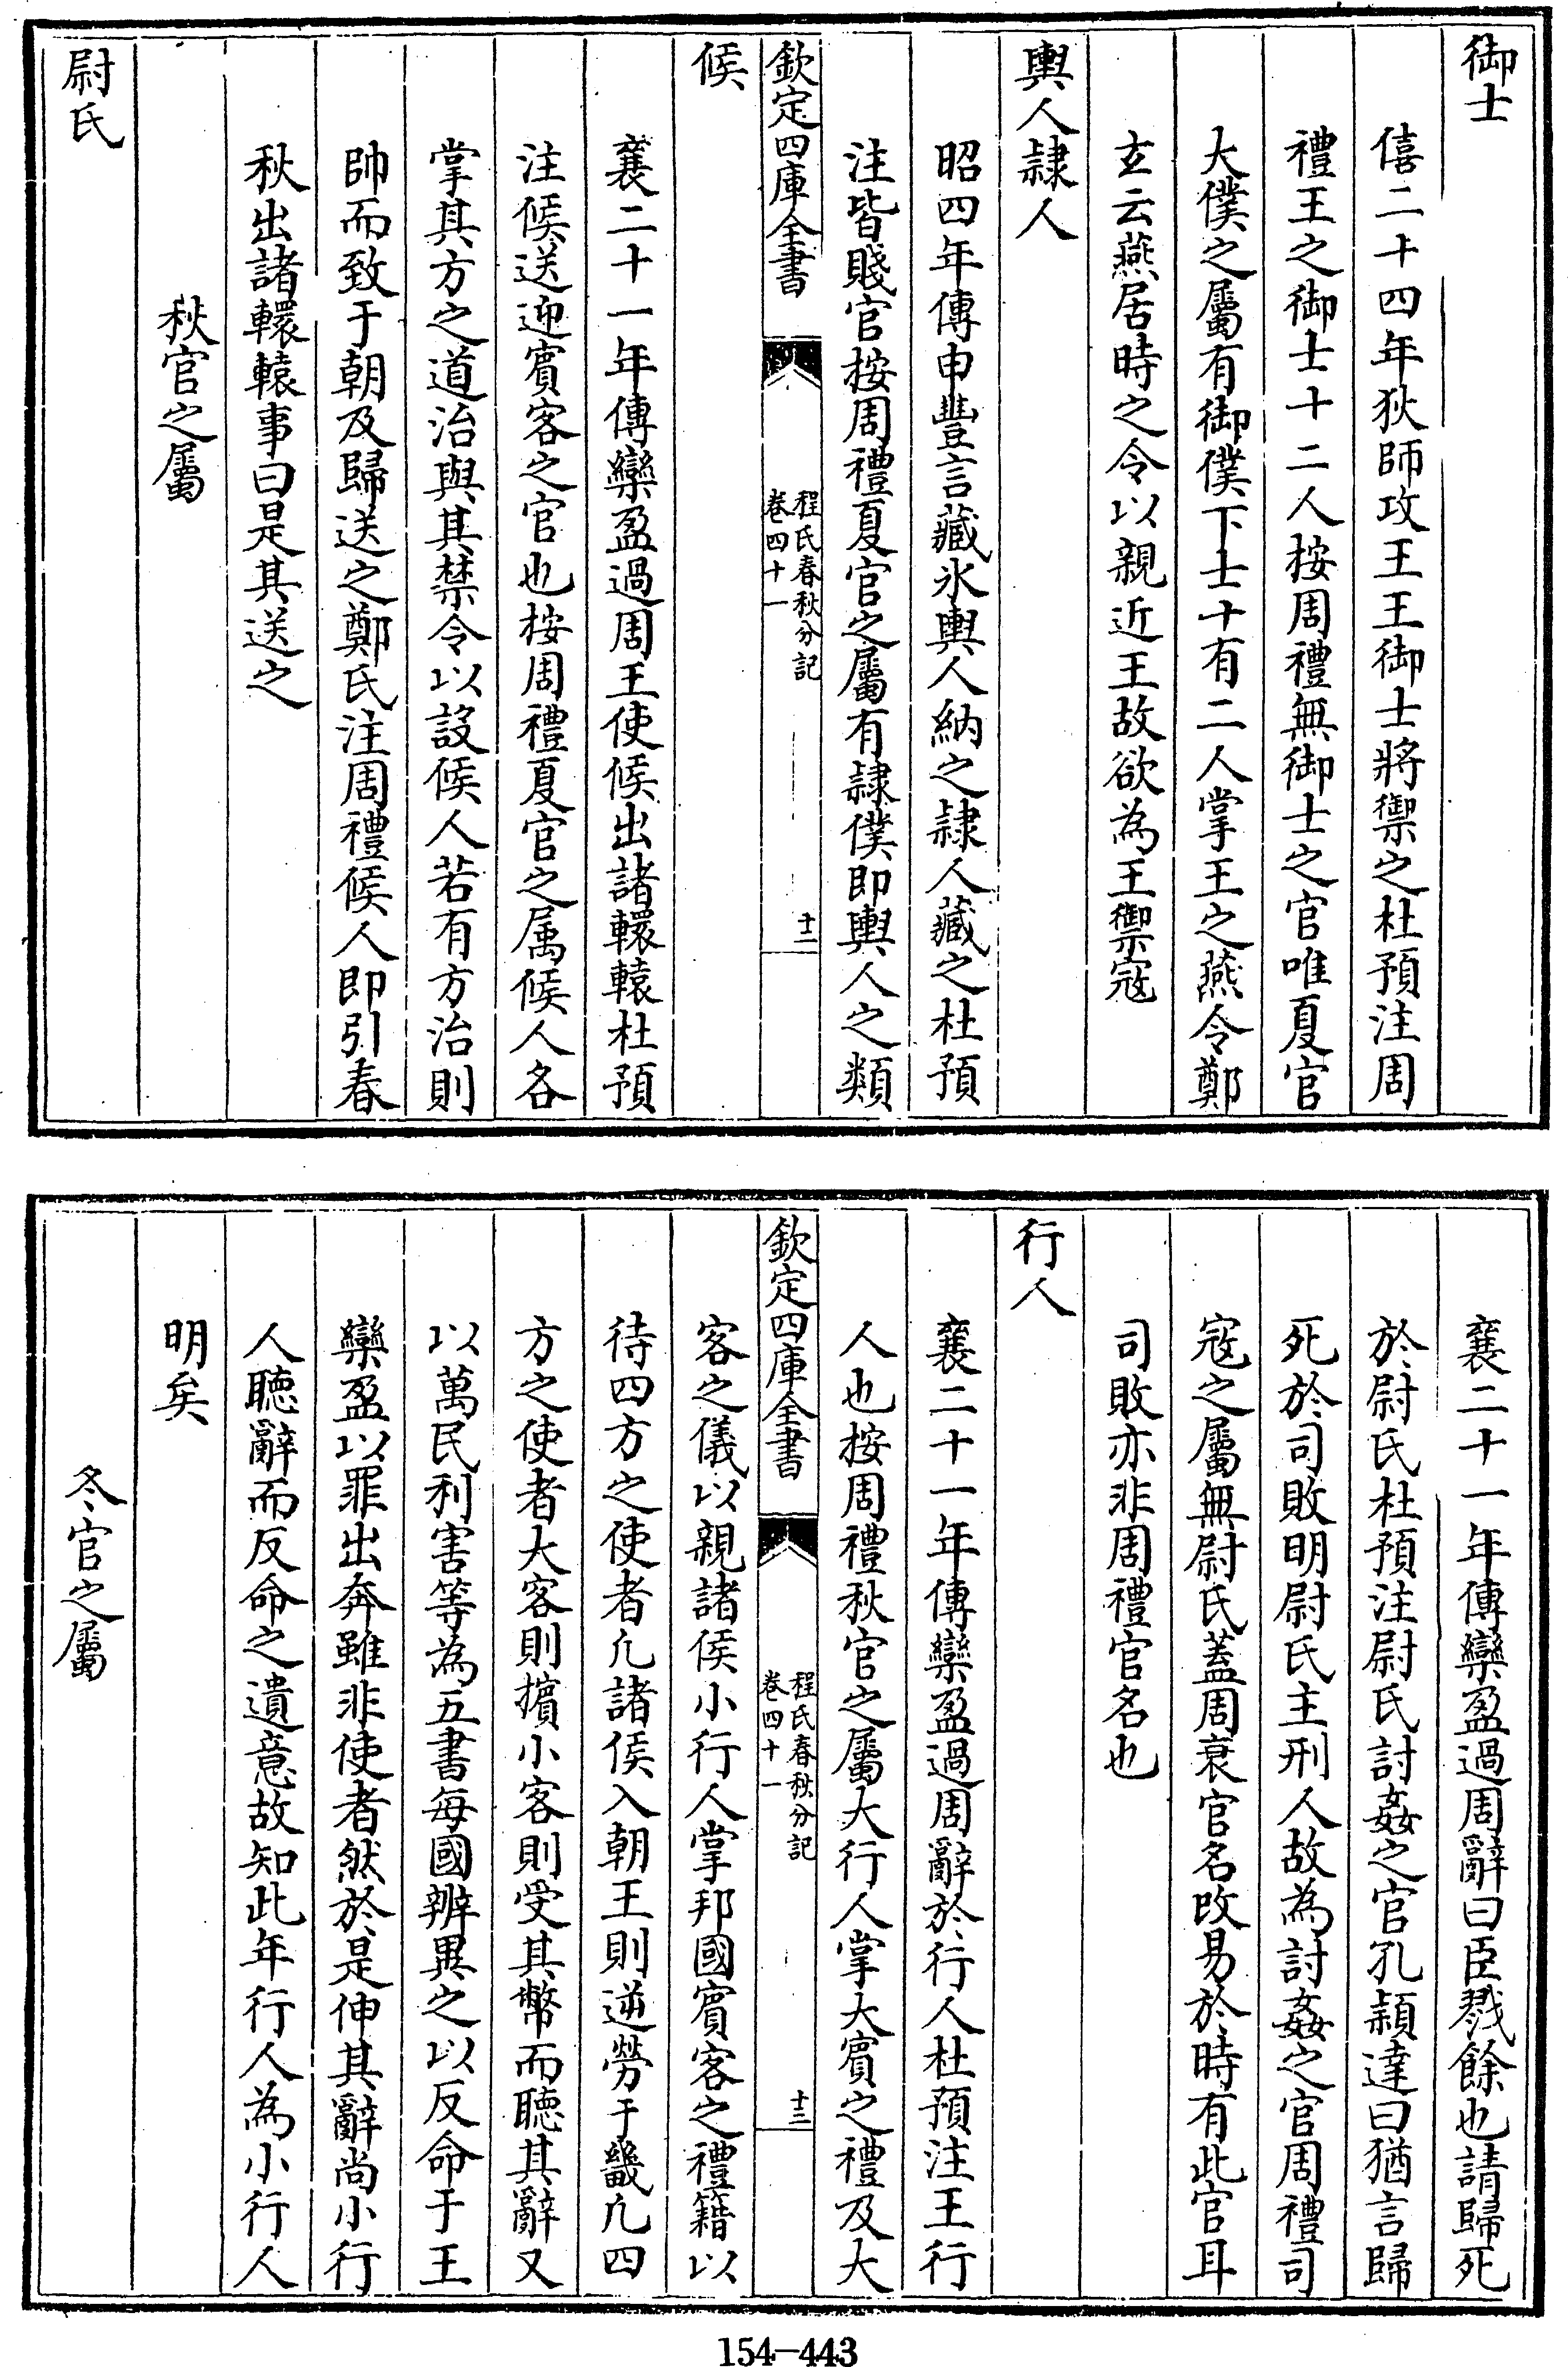 御士
僖二十四年狄師攻王王御士將禦之杜預注周
禮王之御士十二人按周禮無御士之官唯夏官
大僕之屬有御僕下士十有二人掌王之燕令鄭
玄云燕居時之令以親近王故欲為王禦寇
輿人隷人
昭四年傳申豐言藏氷輿人納之隷人藏之杜預
注皆賤官按周禮夏官之屬有隷僕即輿人之類
欽定四庫全書
程氏春秋分記
卷四十一
十二
候
襄二十一年傳欒盈過周王使候出諸轘轅杜預
注候送迎賓客之官也按周禮夏官之属候人各
掌其方之道治與其禁令以設候人若有方治則
帥而致于朝及歸送之鄭氏注周禮候人即引春
秋出諸轘轅事曰是其送之
秋官之屬
尉氏
襄二十一年傳欒盈過周辭曰臣戮餘也請歸死
於尉氏杜預注尉氏討姦之官孔穎達曰猶言歸
死於司敗明尉氏主刑人故為討姦之官周禮司
寇之屬無尉氏蓋周衰官名改易於時有此官耳
司敗亦非周禮官名也
行人
襄二十一年傳欒盈過周辭於行人杜預注王行
人也按周禮秋官之屬大行人掌大賓之禮及大
欽定四庫全書
程氏春秋分記
卷四十一
十三
客之儀以親諸侯小行人掌邦國賓客之禮籍以
待四方之使者凡諸侯入朝王則逆勞于畿凡四
方之使者大客則擯小客則受其幣而聽其辭又
以萬民利害等為五書每國辨異之以反命于王
欒盈以罪出奔雖非使者然於是伸其辭尚小行
人聽辭而反命之遺意故知此年行人為小行人
明矣
冬官之屬
154-443